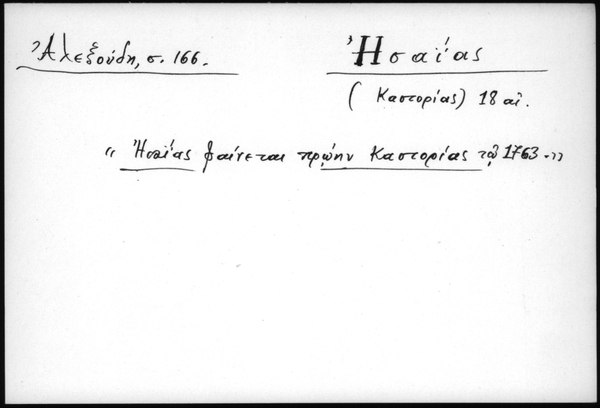 Ἀλεξούδη, σ. 166.
Ἠσαΐας
(Καστορίας) 18 αἰ.
"Ἠσαΐας φαίνεται πρῴην Καστορίας τῷ 1763."